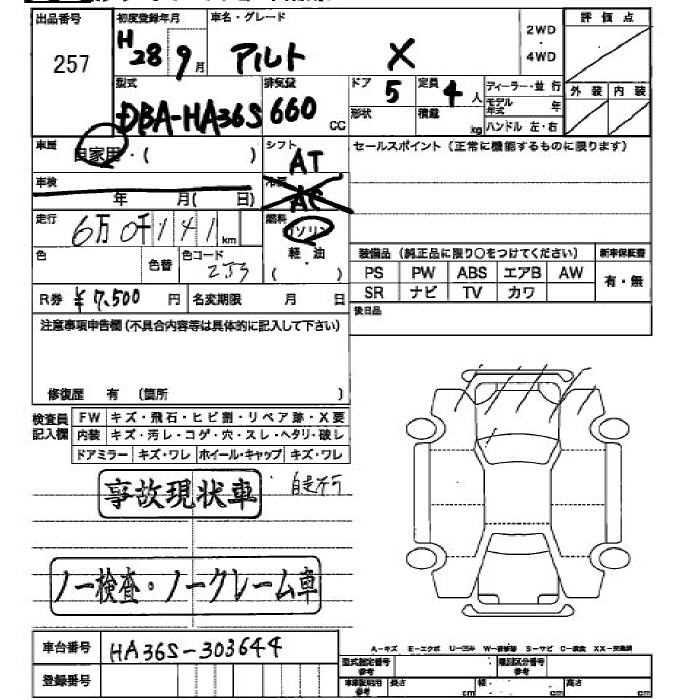 出品番号 初度登録年月 車名・グレード 評価点
257 H28 9月 アルト X 2WD・4WD
型式 排気量 ドア 定員 ディーラー・並行 外装 内装
DBA-HA36S 660cc 5 4人 モデル年式 年
形状 積載 kg ハンドル 左・右
車歴 自家用・( ) シフト AT セールスポイント(正常に機能するものに限ります)
車検 年 月( 日) AC
走行 6万0千141km 燃料 ガソリン
色 色替 色コード ZJ3 軽油 ( ) 装備品(純正品に限り○をつけてください) 新車保証書
PS PW ABS エアB AW 有・無
R券 ¥7,500円 名変期限 月 日 SR ナビ TV カワ
後日品
注意事項申告欄(不具合内容等は具体的に記入して下さい)
修復歴 有 (箇所 )
検査員記入欄 FW キズ・飛石・ヒビ割・リペア跡・X要
内装 キズ・汚レ・コゲ・穴・スレ・ヘタリ・破レ
ドアミラー キズ・ワレ ホイール・キャップ キズ・ワレ
事故現状車 自走不可
ノー検査・ノークレーム車
車台番号 HA36S-303644
A-キズ E-エクボ U-凹み S-サビ C-腐食 XX-交換済
登録番号 型式指定番号 参考 類別区分番号 参考
車庫証明用 参考 長さ cm 幅 cm 高さ cm